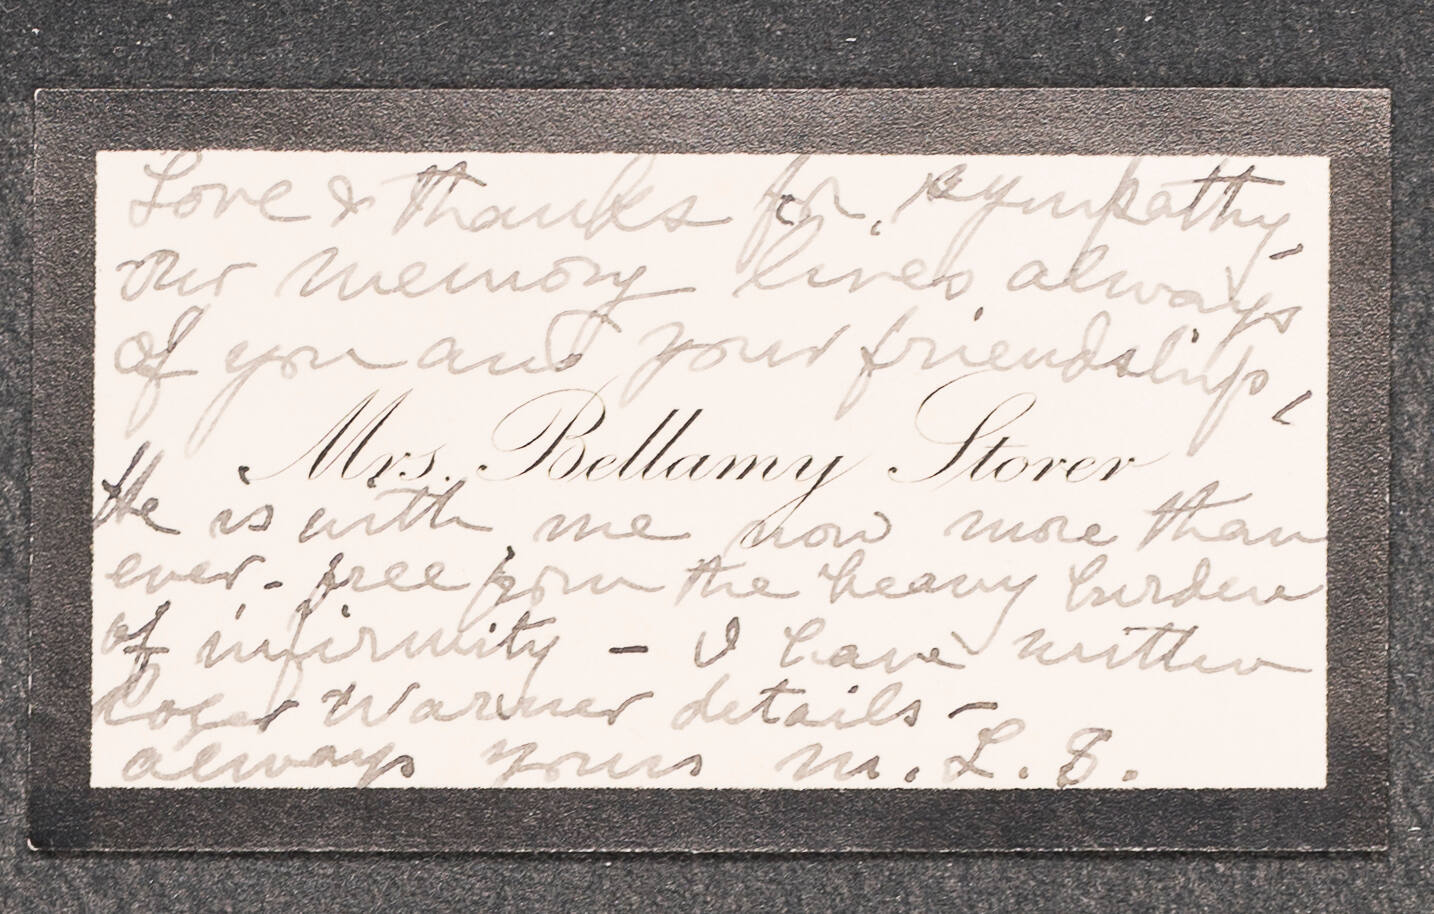 Love & thanks for sympathy -
our memory lives always
of you and your friendship,
Mrs. Bellamy Storer
He is with me now more than
ever - free from the heavy burden
of infirmity - I have written
Roger Warner details -
always yours M. L. S.